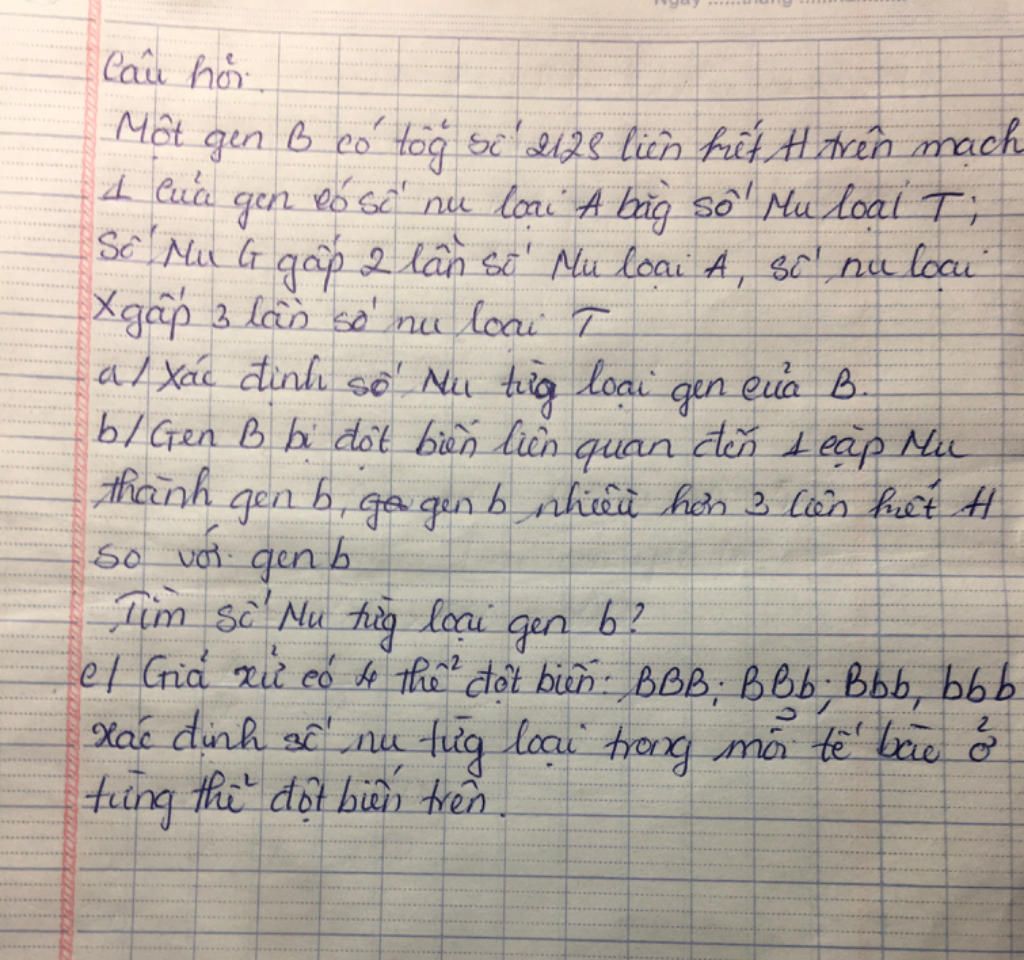 Câu hỏi.
Một gen B có tổg số 2128 liên kết H trên mạch
1 của gen có số nu loại A bằg số Nu loại T;
Số Nu G gấp 2 lần số Nu loại A, số nu loại
X gấp 3 lần số nu loại T
a/ Xác định số Nu từg loại gen của B.
b/ Gen B bị đột biến liên quan đến 1 cặp Nu
thành gen b, gen b nhiều hơn 3 liên kết H
so với gen b
Tìm số Nu từg loại gen b?
c/ Giả xử có 4 thể đột biến: BBB; BBb; Bbb, bbb
xác định số nu từg loại trong mỗi tế bào ở
từng thể đột biến trên.